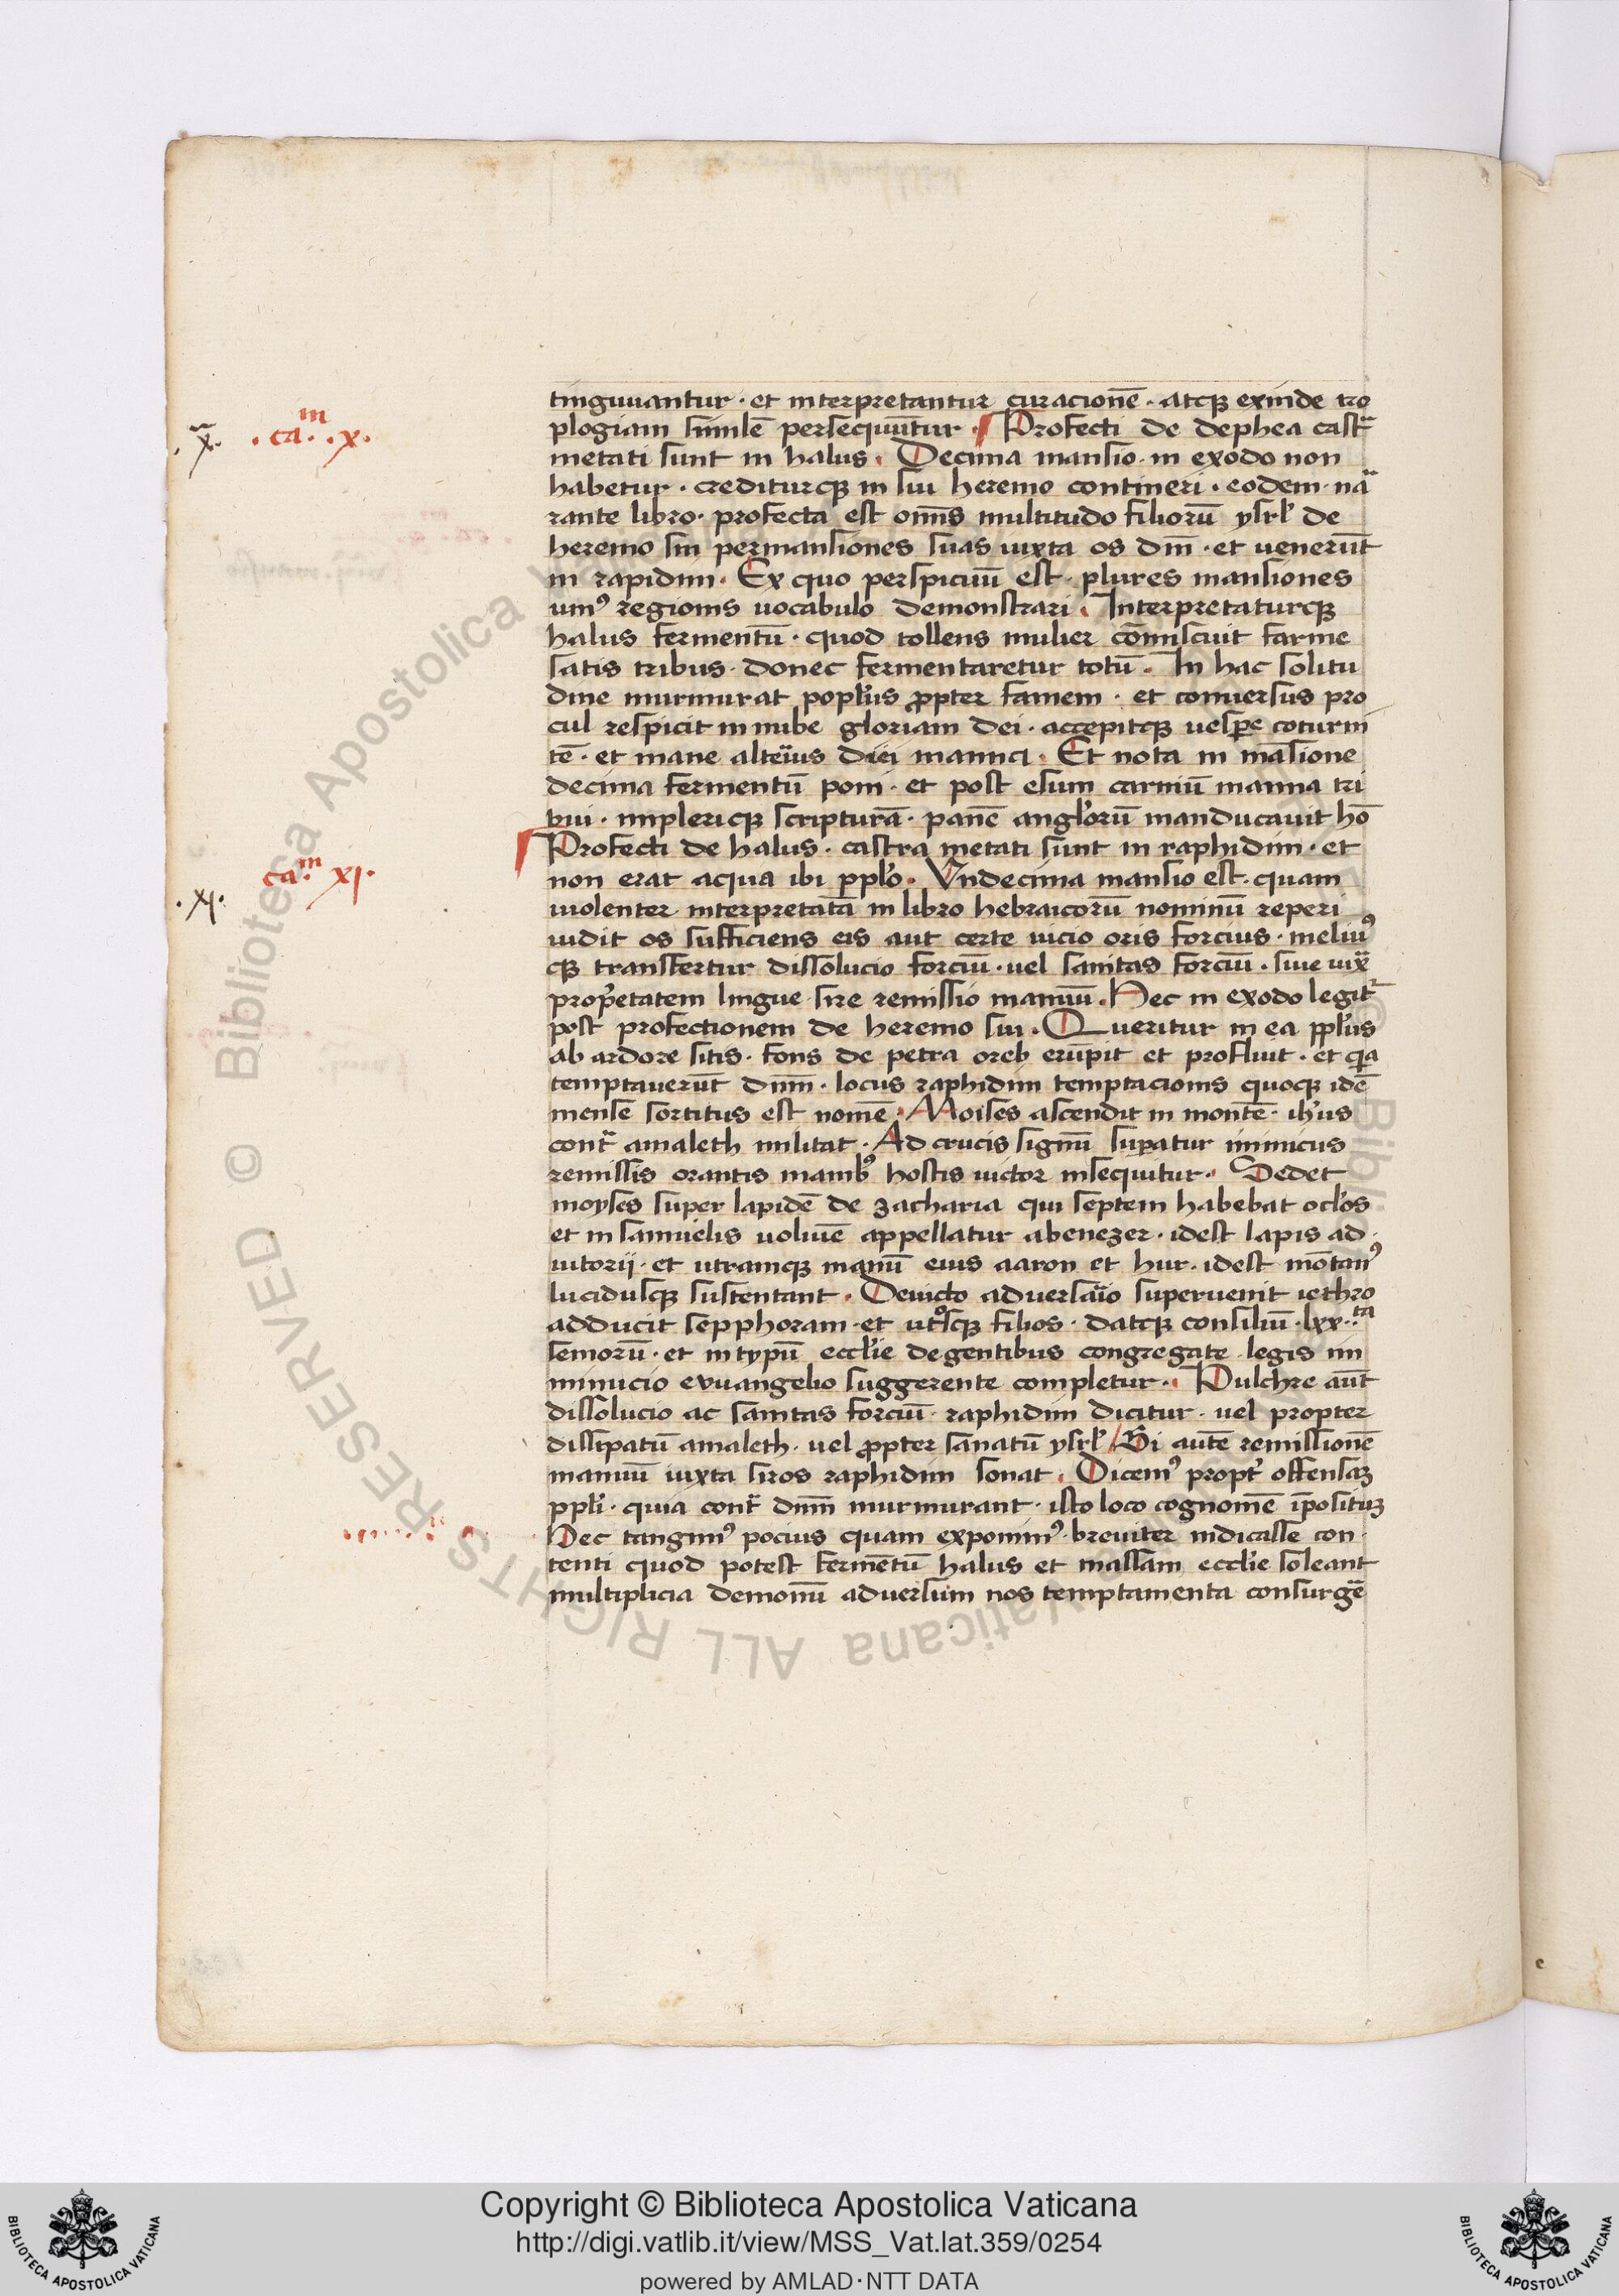 tinguuantur · et interpretantur curacionē · atqꝫ exinde tro
plogiam similē persequūntur · Profecti de dephea castª
.x. . caᵐ. .x.
metati sunt in halus . Decima mansio in exodo non
habetur · crediturqꝫ in sin heremo contineri · eodem naͬ
rante libro · profecta est om̄s multitudo filiorū ysrl̓ de
heremo sin permansiones suas iuxta os dm̄ · et uenerūt
in rapidim · Ex quo perspicuū est · plures mansiones
uniꝰ regionis uocabulo demonstrari . Interpretaturqꝫ
halus fermentū · quod tollens mulier cōmiscuit farine
satis tribus · donec fermentaretur totū . In hac solitu
dine murmurat popl̓us ꝓpter famem · et conuersus pro
cul respicit in nube gloriam dei · accepitqꝫ uesꝑe coturni
cē · et mane alteͥus diei manna . Et nota in māsione
decima fermentū poni · et post esum carniū manna tri
bui · implericqꝫ scripturā · panē angl̓orū manducauit hō
Profecti de halus · castra metati sunt in raphidim · et
caᵐ. xi.
non erat aqua ibi ppl̓o . Vndecima mansio est · quam
.xi.
uiolenter interpretatā in libro hebraicorū nominū reperi
uidit os sufficiens eis aut certe uicio oris forcius · meliuꝰ
qꝫ transfertur dissolucio forciū · uel sanitas forciū · siue iuxª
prop̓etatem lingue sire remissio manuū . Hec in exodo legitͬ
post profectionem de heremo sin . Queritur in ea ppl̓us
ab ardore sitis · fons de petra oreb erūpit et profluit · et qͥa
temptauerūt dnm̄ · locus raphidim temptacionis quoqꝫ idē
mense sortitus est nomē . Moises ascendit in montē · ih̓us
contͣ amaleth militat . Ad crucis signū suꝑatur inimicus
remissis orantis manibꝰ hostis uictor insequitur . Sedet
moyses super lapidē de zacharia qui septem habebat ocl̓os
et in samuelis uolumē appellatur abenezer · idest lapis ad
iutorij · et utramqꝫ manū eius aaron et hur · idest mōtanꝰ
lucidusqꝫ sustentant . Deuicto aduersaͥo superuenit iethro
adducit sepphoram · et utͦsqꝫ filios · datqꝫ consiliū · lxx.ᵗᵃ
seniorū · et in typū eccl̓ie de gentibus congregate legis im
minucio euuangelio suggerente completur . Pulchre aūt
dissolucio ac sanitas forciū · raphidim dicitur · uel propter
dissipatū amaleth · uel ꝓpter sanatū ysrl̓ Si autē remissionē
manuū iuxta siros raphidim sonat . Dicemꝰ propt̓ offensaꝫ
ppl̓i · quia contͣ dnm̄ murmurant · isto loco cognomē īpositūꝫ
Hec tangimꝰ pocius quam exponimꝰ · breuiter indicasse con
tenti quod potest fermētū halus et massam eccl̓ie soleant
multiplicia demonū aduersum nos temptamenta consurgē
© Biblioteca Apostolica Vaticana ALL RIGHTS RESERVED
Copyright © Biblioteca Apostolica Vaticana
http://digi.vatlib.it/view/MSS_Vat.lat.359/0254
powered by AMLAD·NTT DATA
BIBLIOTECA APOSTOLICA VATICANA
BIBLIOTECA APOSTOLICA VATICANA